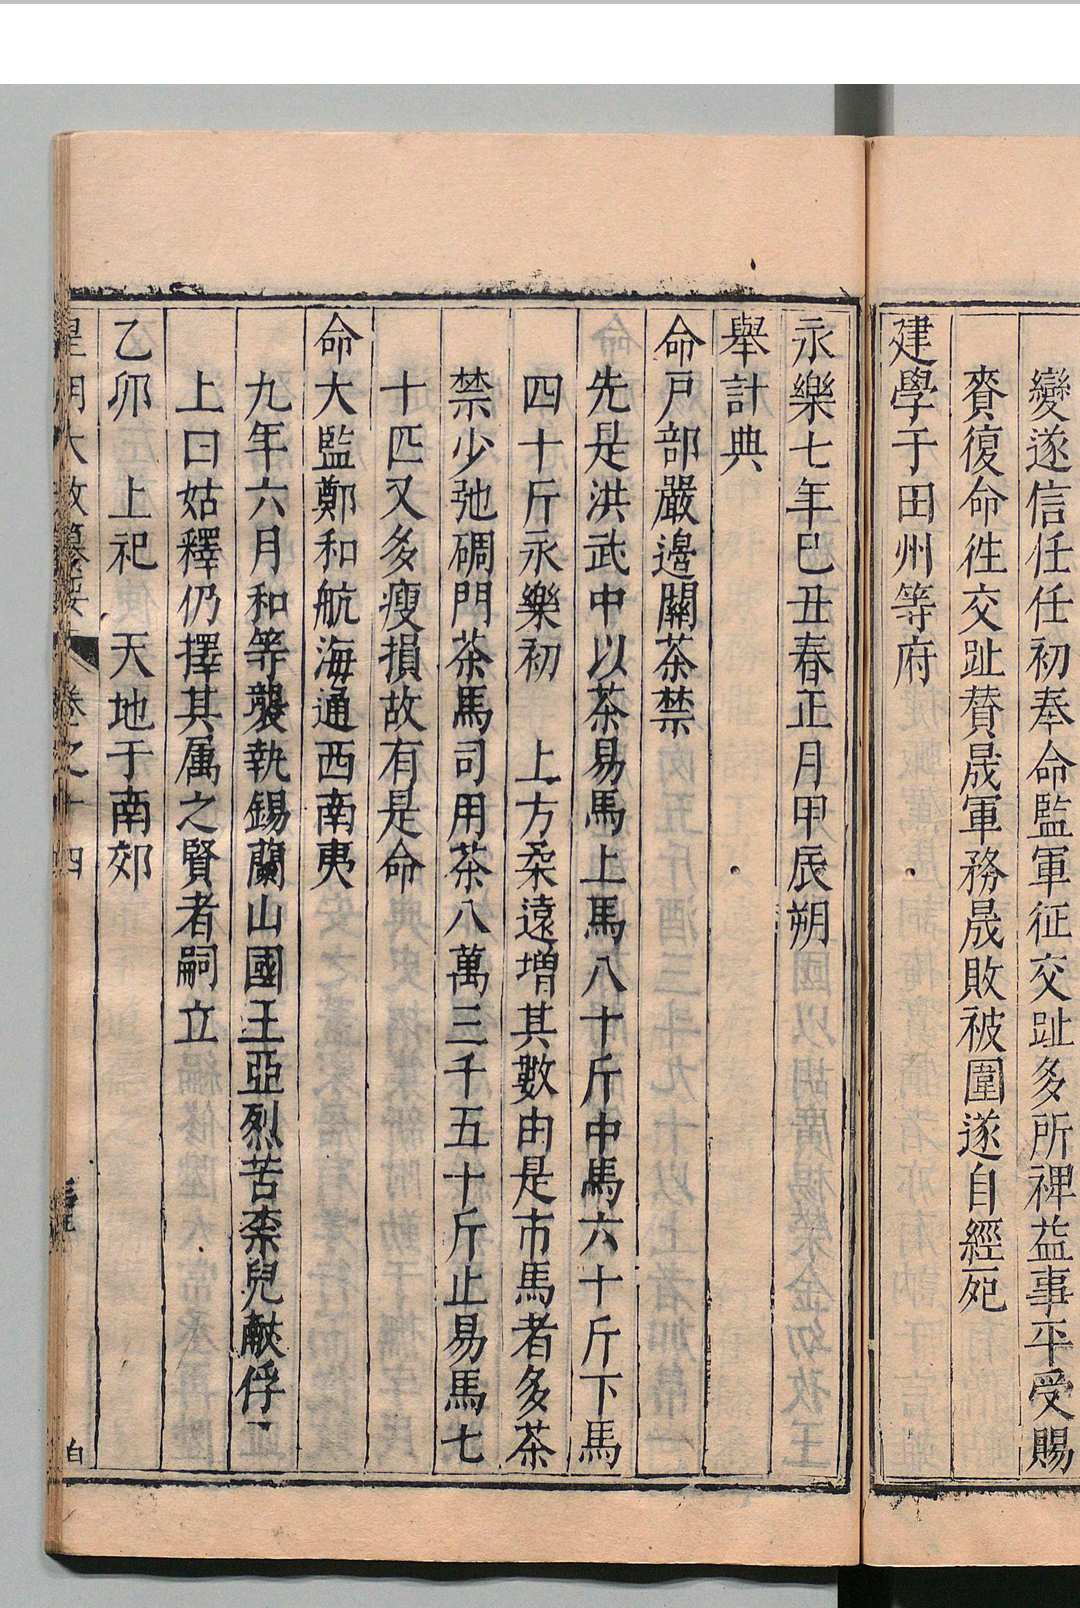 變遂信任任初奉命監軍征交趾多所裨益事平受賜
賚復命徃交趾贊晟軍務晟敗被圍遂自經死
建學于田州等府
永樂七年巳丑春正月甲辰朔
舉計典
命戸部嚴邊關茶禁
先是洪武中以茶易馬上馬八十斤中馬六十斤下馬
四十斤永樂初　上方柔遠增其數由是市馬者多茶
禁少弛碉門茶馬司用茶八萬三千五十斤止易馬七
十匹又多瘦損故有是命
命大監鄭和航海通西南夷
九年六月和等襲執錫蘭山國王亞烈苦柰兒獻俘
上曰姑釋仍擇其属之賢者嗣立
乙卯　上祀　天地于南郊
皇明大政纂要　卷之十四